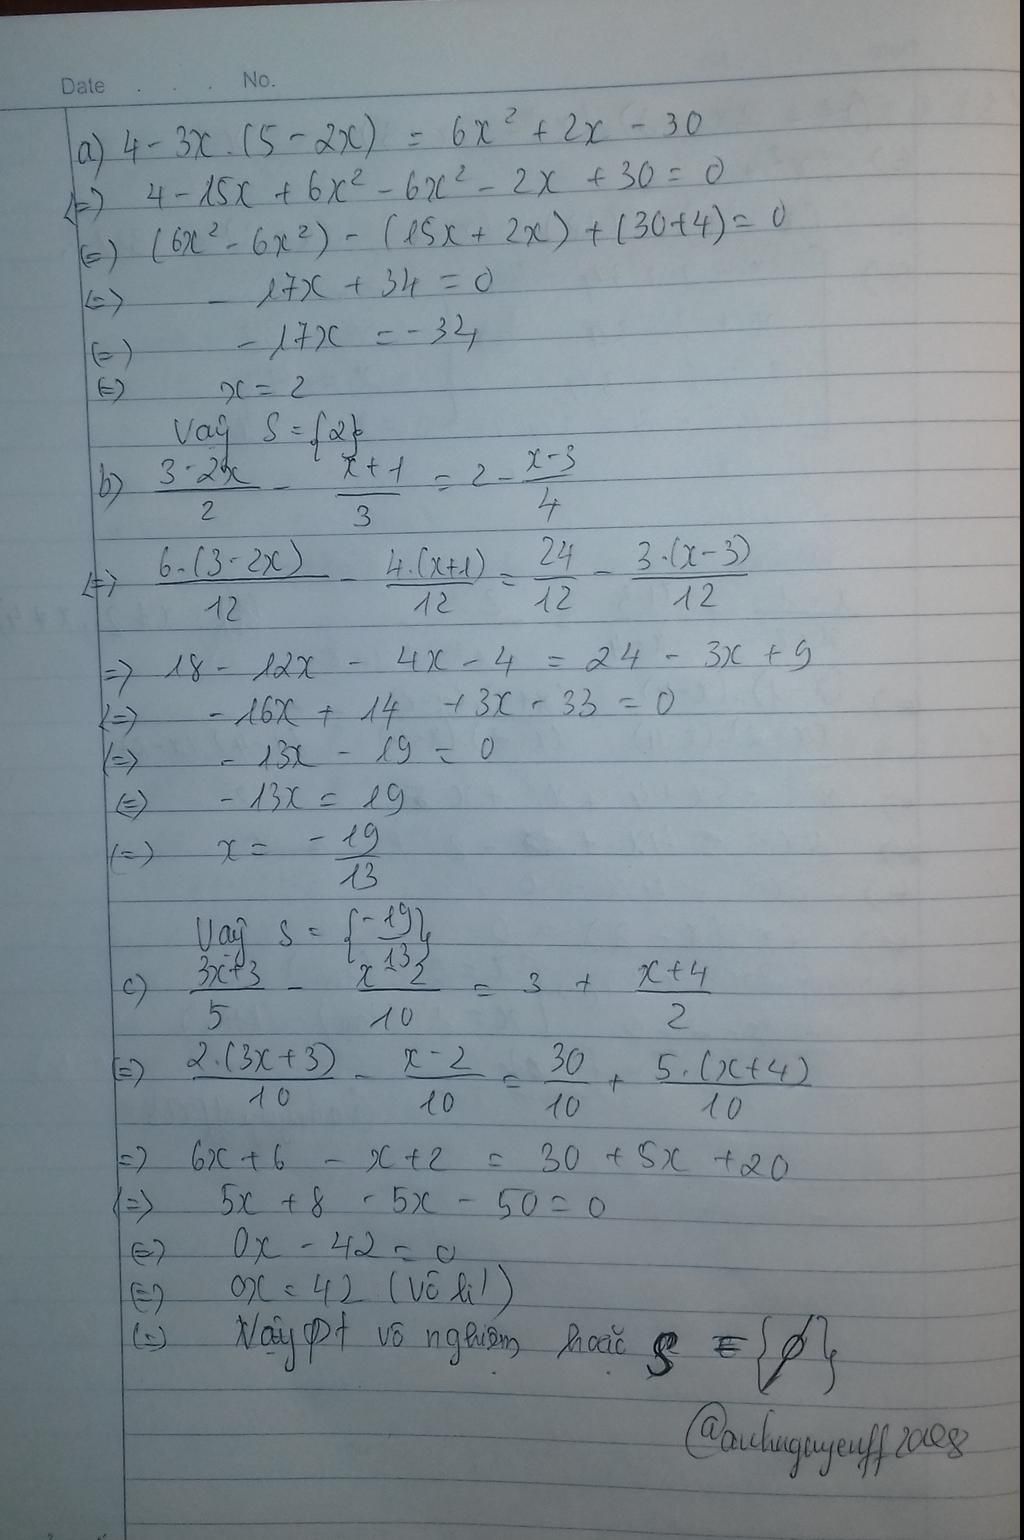 Date . . . No.
a) 4 - 3x . (5 - 2x) = 6x² + 2x - 30
(=) 4 - 15x + 6x² - 6x² - 2x + 30 = 0
(=) (6x² - 6x²) - (15x + 2x) + (30+4) = 0
(=) - 17x + 34 = 0
(=) - 17x = - 34
(=) x = 2
Vậy S = {2}
b) \frac{3-2x}{2} - \frac{x+1}{3} = 2 - \frac{x-3}{4}
(=) \frac{6.(3-2x)}{12} - \frac{4.(x+1)}{12} = \frac{24}{12} - \frac{3.(x-3)}{12}
=) 18 - 12x - 4x - 4 = 24 - 3x + 9
(=) - 16x + 14 + 3x - 33 = 0
(=) - 13x - 19 = 0
(=) - 13x = 19
(=) x = - \frac{19}{13}
Vậy S = {\frac{-19}{13}}
c) \frac{3x+3}{5} - \frac{x-2}{10} = 3 + \frac{x+4}{2}
(=) \frac{2.(3x+3)}{10} - \frac{x-2}{10} = \frac{30}{10} + \frac{5.(x+4)}{10}
=) 6x + 6 - x + 2 = 30 + 5x + 20
(=) 5x + 8 - 5x - 50 = 0
(=) 0x - 42 = 0
(=) 0x = 42 (vô lí)
(=) Vậy pt vô nghiệm hoặc S = {∅}